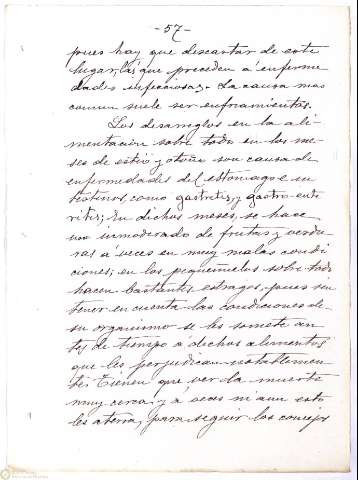 -57-
pues hay que descartar de este
lugar, las que preceden á enferme
dades infecciosas. La causa mas
comun suele ser enfriamientos.
Los desarreglos en la ali
mentación sobre todo en los me-
ses de estio y otoño son causa de
enfermedades del estomago e in
testinos, como gastritis, y gastro-ente
ritis; En dichos meses, se hace
uso inmoderado de frutas y verdu
ras á veces en muy malas condi
ciones; en los pequeñuelos sobre todo
hacen bastantes estragos, pues sin
tener en cuenta las condiciones de
su organismo se les somete an-
tes de tiempo á dichos alimentos
que les perjudican notablemen
te: Tienen que ver la muerte
muy cerca, y á veces ni aun esto
les aterra, para seguir los consejos